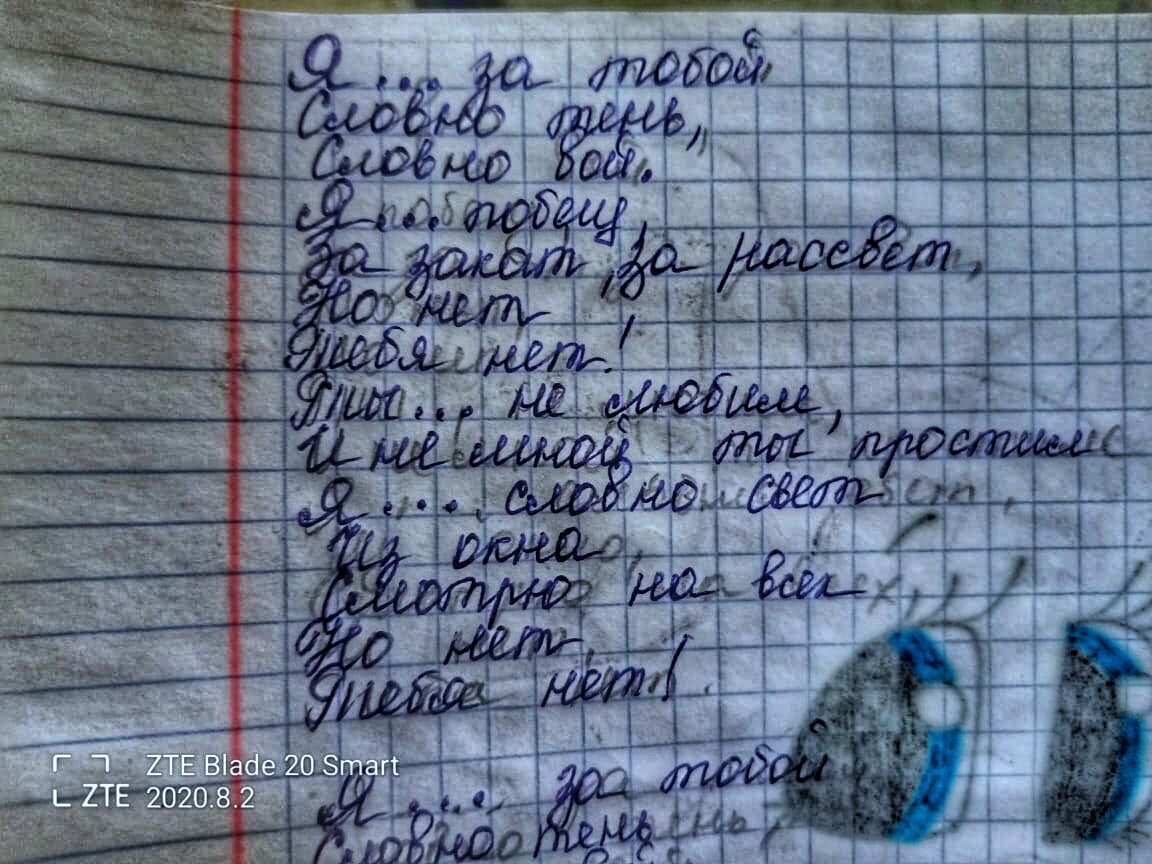 Я... за тобой
Словно тень,
Словно вой.
Я... побещ,
За закат, за рассвет,
Но нет
Тебя нет!
Ты... не любим,
И не мной ты простил
Я.... словно свет
Из окна
Смотрю на всех
Но нет,
Тебя нет!
Я.... за тобой
Словно тень
ZTE Blade 20 Smart
ZTE 2020.8.2